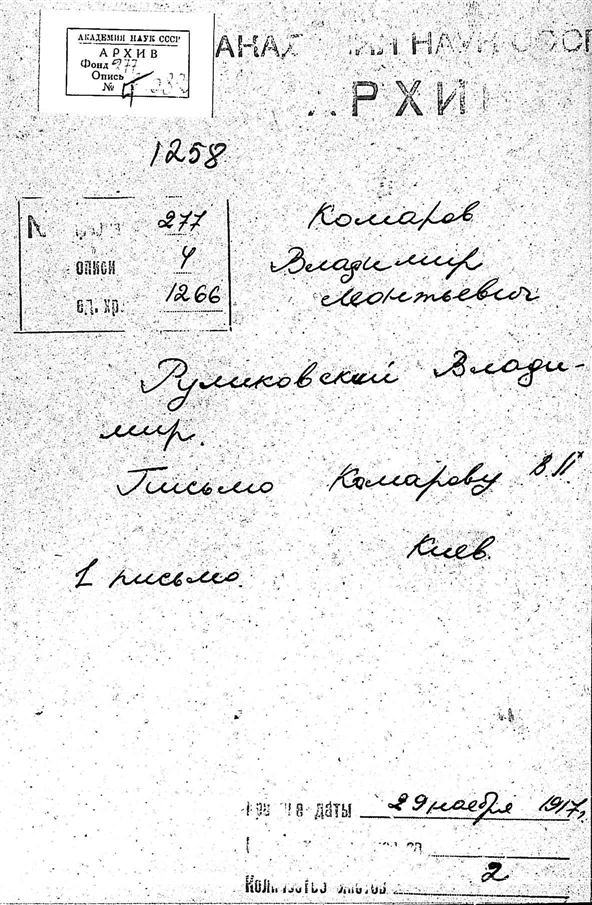 АКАДЕМИЯ НАУК СССР
АРХИВ
Фонд 277
Опись 4
№
АКАДЕМИЯ НАУК СССР
АРХИВ
1258
277
описи 4
ед. хр. 1266
Комаров
Владимир
Леонтьевич
Руликовский Влади-
мир.
Письмо Комарову В.Л.
Киев.
1 письмо.
даты 29 ноября 1917 г.
Количество листов 2